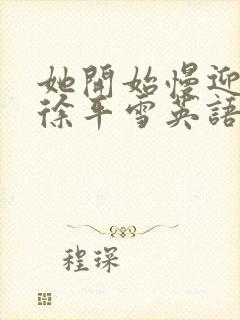 她開始慢迎
徐平雪英語
程琛